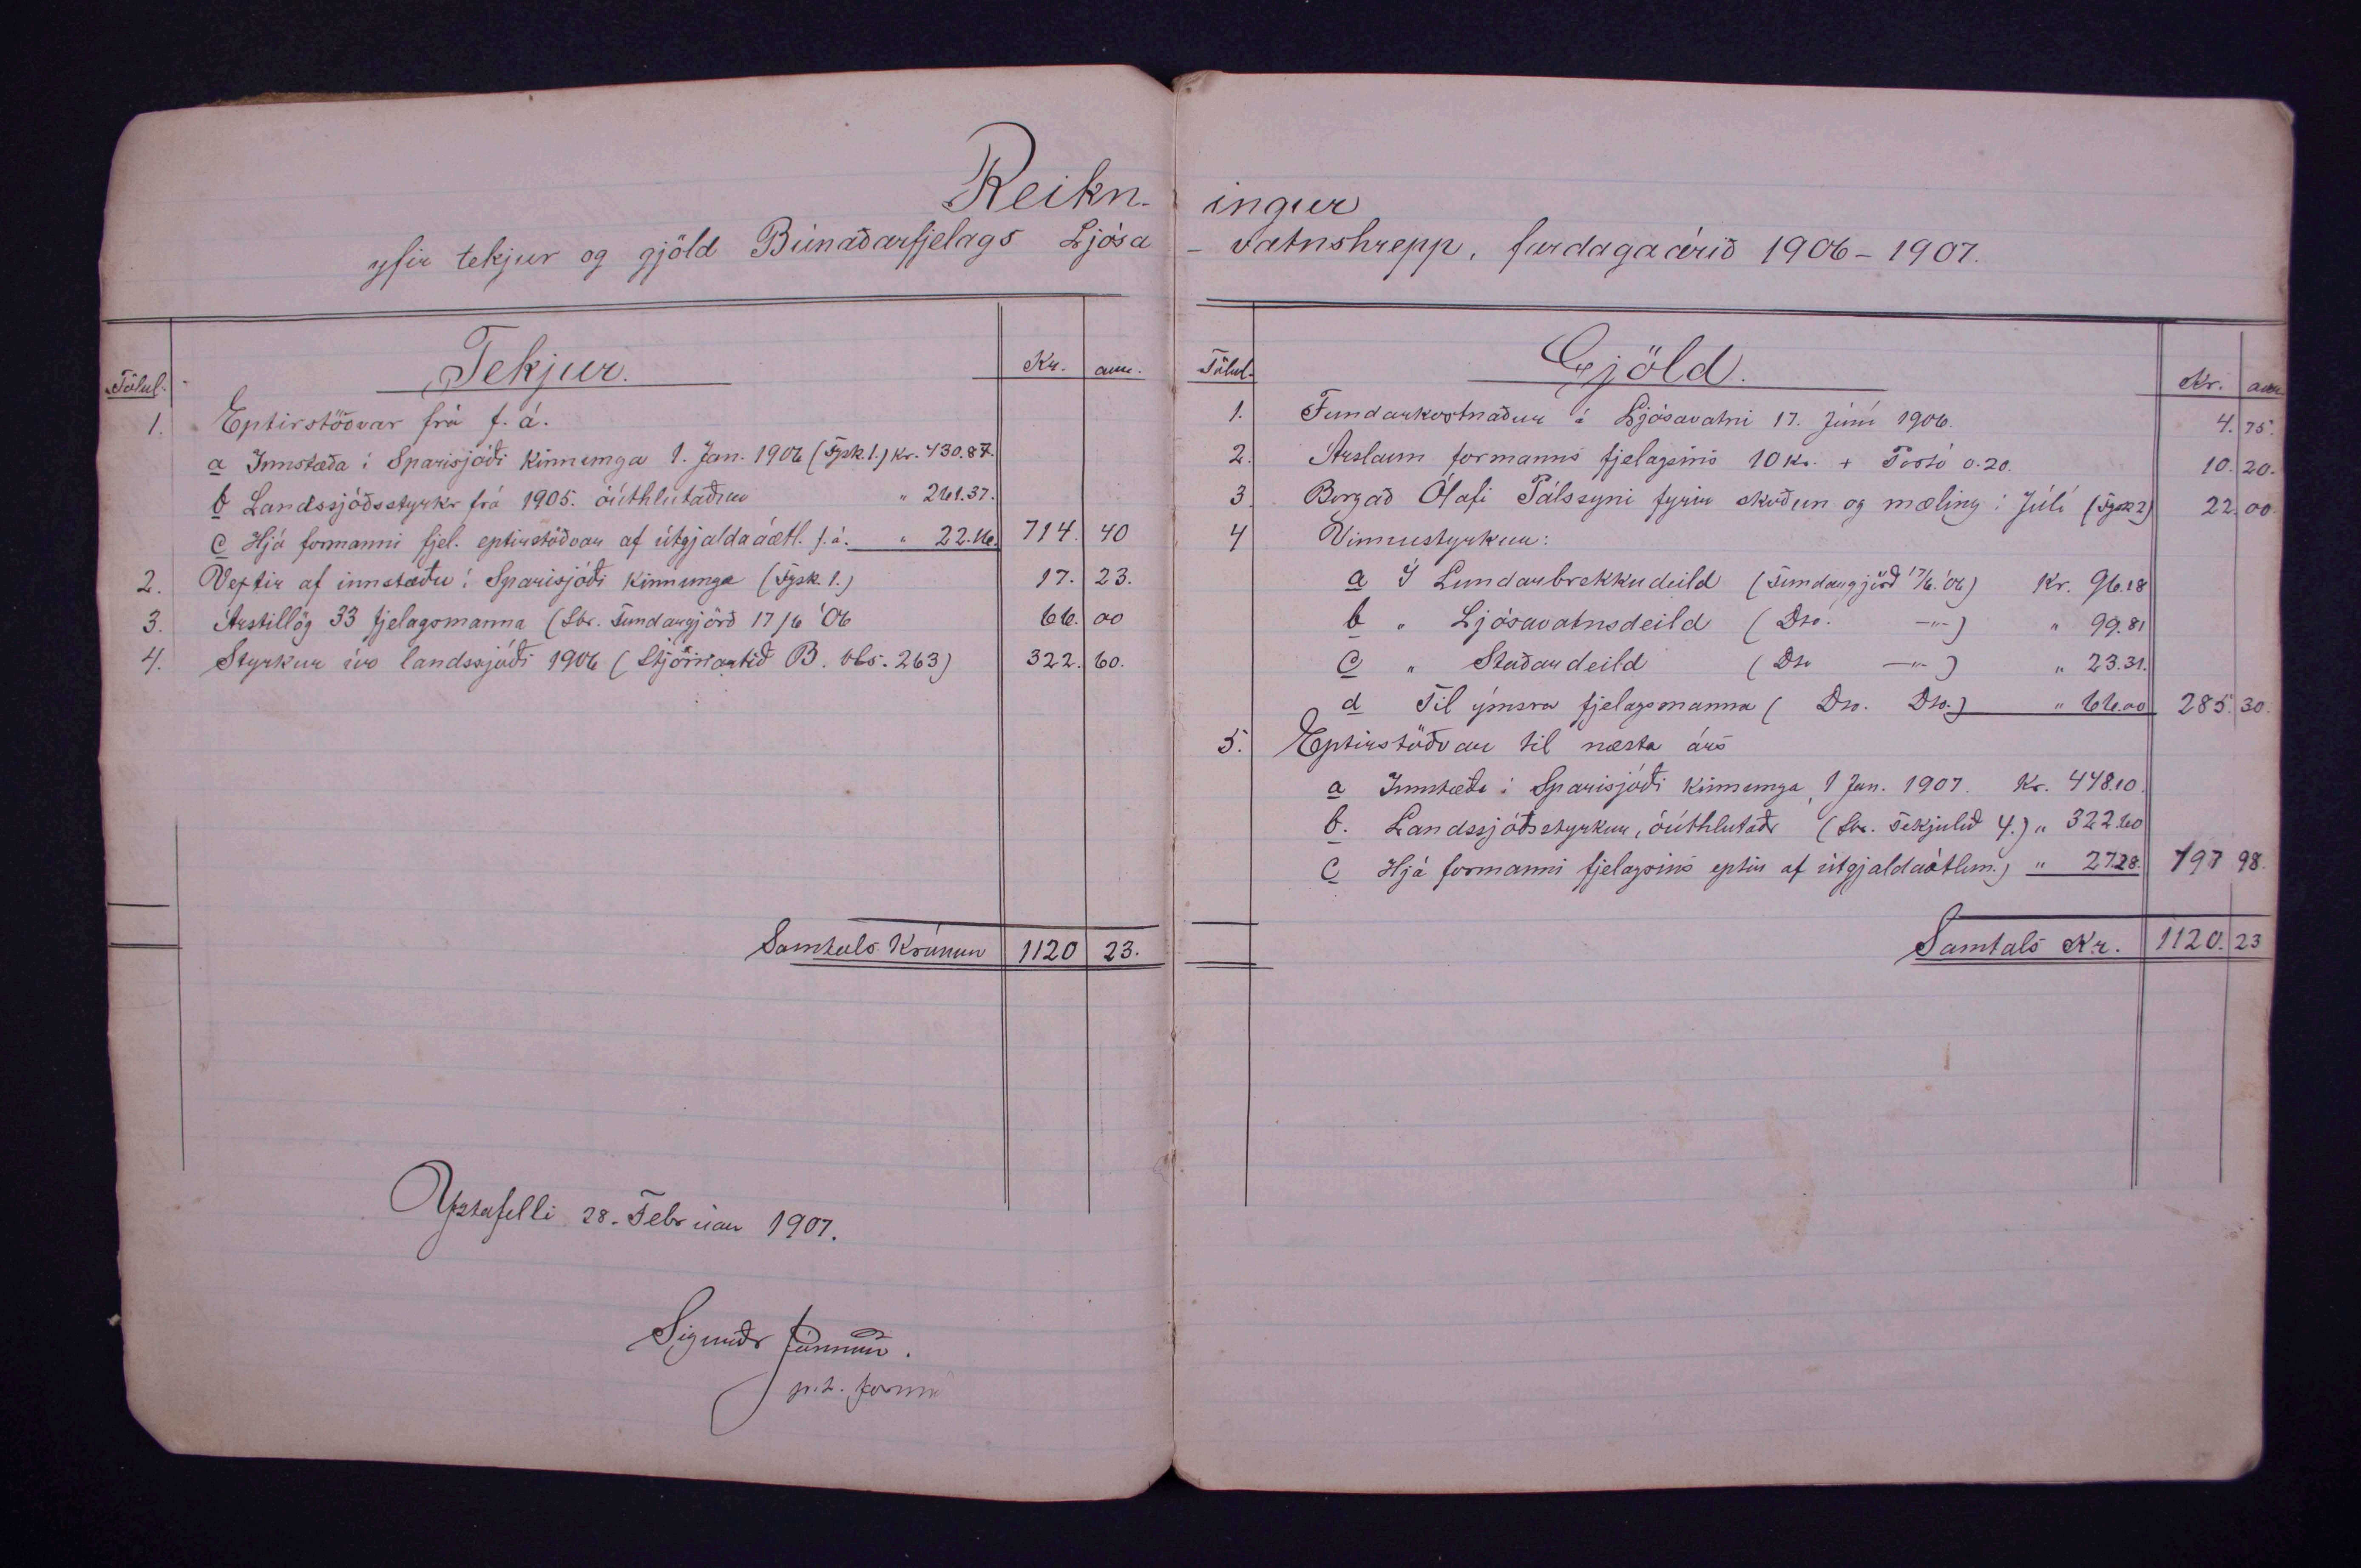 Reikn- ingur
yfir tekjur og gjöld Búnaðarfjelags Ljósa - vatnshrepp, fardagaárið 1906-1907.
Tölul. Tekjur. Kr. aur.
1. Eptirstöðvar frá f. á.
a Innstæða í Sparisjóði Kinnunga 1. Jan. 1906 (Fgsk. 1.) Kr. 430.87.
b Landssjóðsstyrkr frá 1905. óúthlutaður " 261.37.
c Hjá formanni fjel. eptirstöðvar af útgjaldaáætl. f. á. " 22.16. 714. 40
2. Vextir af innstæðu í Sparisjóði Kinnunga (Fgsk. 1.) 17. 23.
3. Árstillög 33 fjelagsmanna (Sbr. Fundargjörð 17/6 '06 66. 00
4. Styrkur úr landssjóði 1906 (Stjórnartíð B. bls. 263) 322. 60.
Samtals Krónur 1120 23.
Yztafelli 28. Febrúar 1907.
Sigurðr Jónsson.
p.t. form
Tölul. Gjöld. Kr. aur
1. Fundarkostnaður á Ljósavatni 17. Júní 1906. 4. 75.
2. Árslaun formanns fjelagsins 10 Kr. + Porto 0.20. 10. 20.
3. Borgað Ólafi Pálssyni fyrir skoðun og mæling í Júlí (Fgsk 2) 22. 00.
4 Vinnustyrkur:
a Í Lundarbrekkudeild (Fundargjörð 17/6. '06) Kr. 96.18
b " Ljósavatnsdeild (Dto. —"—) " 99.81
c " Staðardeild (Dto —"—) " 23.31.
d Til ýmsra fjelagsmanna ( Dto. Dto.) " 66.00 285. 30.
5. Eptirstöðvar til næsta árs
a Innstæða í Sparisjóði Kinnunga, 1 Jan. 1907. Kr. 448.10.
b. Landssjóðsstyrkur, óúthlutaðr (Sbr. Tekjulið 4.) " 322.60
c Hjá formanni fjelagsins eptir af útgjaldaátlun.) " 27.28. 797 98.
Samtals Kr. 1120. 23